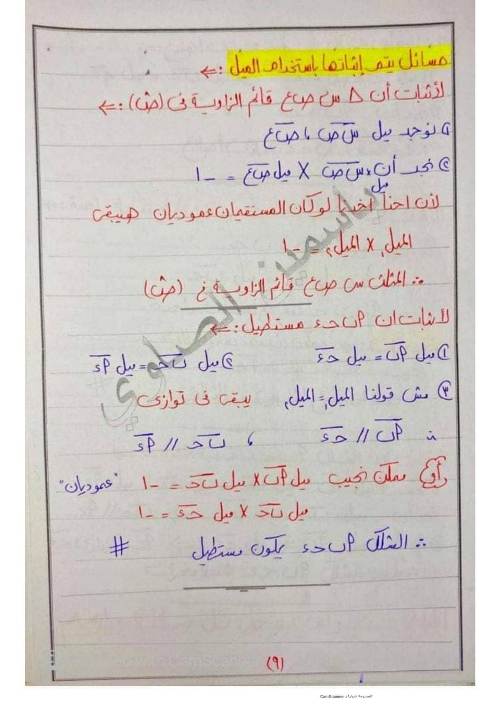 مسائل يتم إثباتها باستخدام الميل :←
لأثبات أن △ س ص ع قائم الزاوية فى (ص) :←
① نوجد ميل س ص ، ص ع
② نجد أن ميل س ص × ميل ص ع = -١
لأن احنا أخدنا لو كان المستقيمان عموديان هيبقى
الميل₁ × الميل₂ = -١
∴ المثلث س ص ع قائم الزاوية فى (ص)
لأثبات ان P ب ح ء مستطيل :←
① ميل P ب = ميل ح ء ② ميل ب ح = ميل P ء
③ مش قولنا الميل₁ = الميل₂ يبقى فى توازى
∴ P ب // ح ء ، ب ح // P ء
④ ممكن نجيب ميل P ب × ميل ب ح = -١ "عموديان"
ميل ب ح × ميل ح ء = -١
∴ الشكل P ب ح ء يكون مستطيل #
(٩)
ياسمين الصاوي